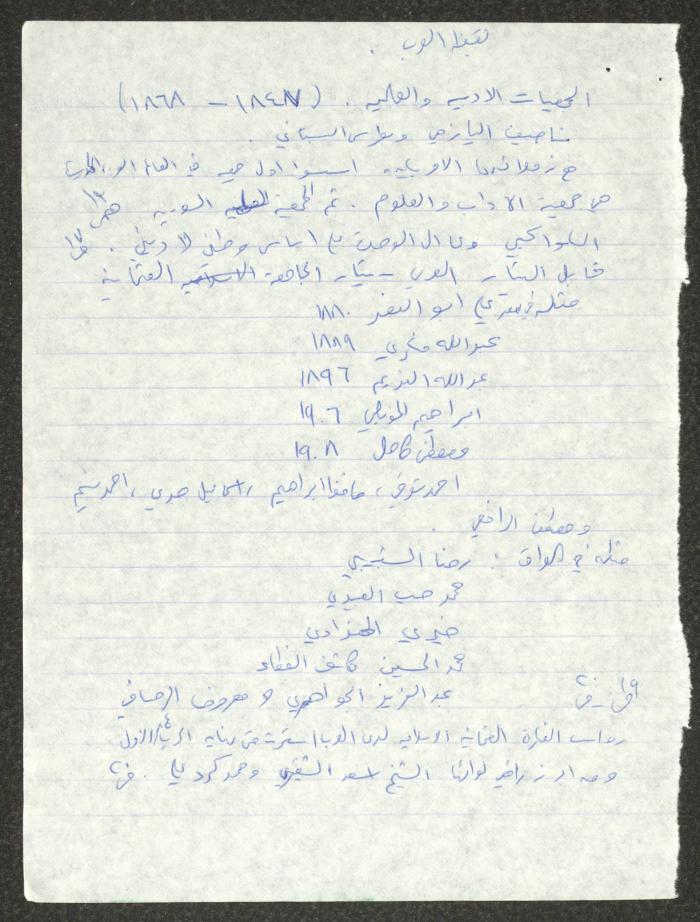 يقظة العرب .
الجمعيات الادبيه والعلميه . (١٨٤٧ – ١٨٦٨)
ناصيف اليازجي وبطرس البستاني .
مع زملائهما الامريكيه اسسوا اول جمعيه في العالم العربي
هي جمعية الاداب والعلوم . ثم الجمعية العلميه السوريه ص ١٣
على اساس وطني لا ديني . ص ١٧
مقابل التيار العربي – تيار الجامعة الاسلاميه العثمانية
مثله في مصر علي ابو النصر ١٨٨٠
عبدالله فكري ١٨٨٩
عبدالله النديم ١٨٩٦
ابراهيم المويلحي ١٩٠٦
مصطفى كامل ١٩٠٨
احمد شوقي ، حافظ ابراهيم ، اسماعيل صبري ، احمد نسيم
ومصطفى الرافعي .
مثله في العراق : رضا الشبيبي
محمد حبيب العبيدي
خيري الهنداوي
محمد الحسين كاشف الغطاء
عبدالعزيز الجواهري و معروف الرصافي
الفكرة العثمانية الاسلاميه لدى العرب استمرت حتى نهايه الحرب ع الاول
ومن ابرز لوائها الشيخ اسعد الشقيري ومحمد كرد علي .